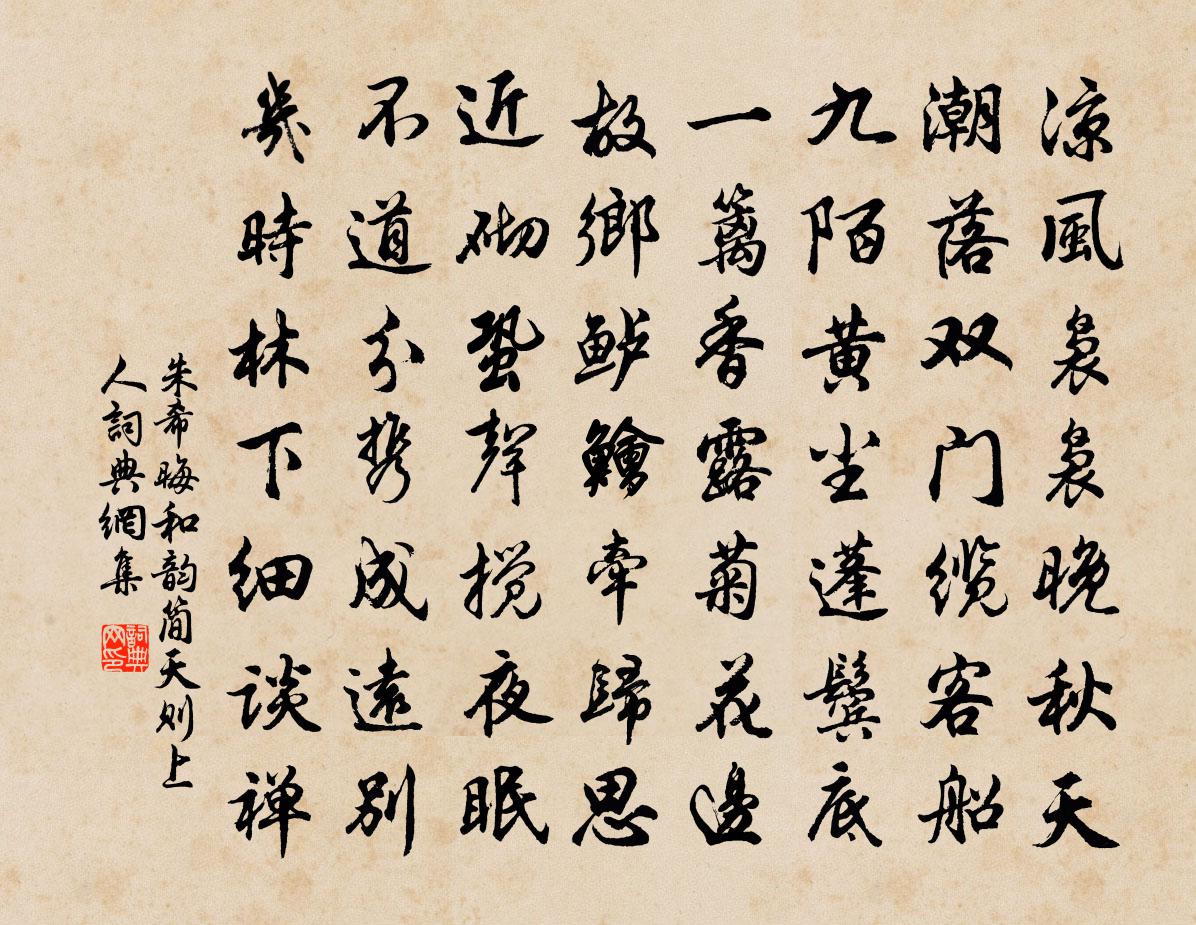 凉風袅袅晚秋天
潮落双门缆客船
九陌黄尘蓬鬓底
一篱香露菊花邊
故鄉鲈鱠牵歸思
近砌蛩聲搅夜眠
不道分携成遠别
幾時林下细谈禅
朱希晦和韵简天则上
人詞典網集
詞典
网印